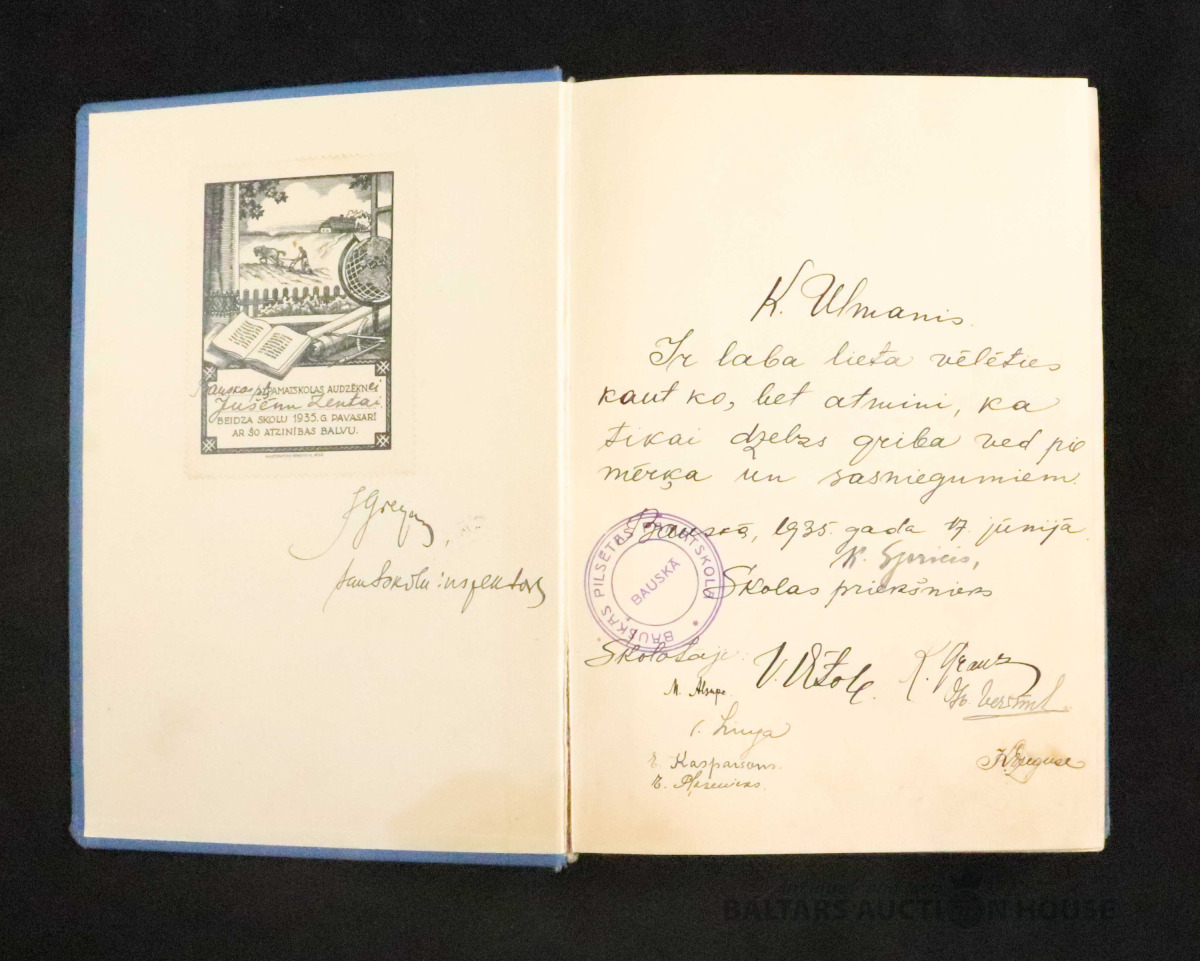 Bauskas pils. PAMATSKOLAS AUDZĒKNEI
Zentai
BEIDZA SKOLU 1935. G. PAVASARĪ
AR ŠO ATZINĪBAS BALVU.
tautskolu inspektors
K. Ulmanis.
Ir laba lieta vēlēties
kaut ko, bet atmini, ka
tikai dzelzs griba ved pie
mērķa un sasniegumiem.
Bauskā, 1935. gada 17. jūnijā.
Skolas priekšnieks
BAUSKAS PILSĒTAS PAMATSKOLA
BAUSKĀ
Skolotāji:
M. Alsupe.
V. Vītol
E. Kasparsons.
BALTARS AUCTION HOUSE